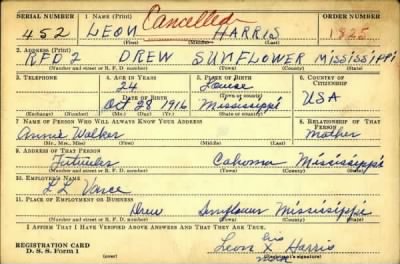 SERIAL NUMBER 1. NAME (Print) ORDER NUMBER
452 LEON Cancelled HARRIS 1825
(First) (Middle) (Last)
2. ADDRESS (Print)
RFD 2 DREW SUNFLOWER MISSISSIPPI
(Number and street or R. F. D. number) (Town) (County) (State)
3. TELEPHONE 4. AGE IN YEARS 5. PLACE OF BIRTH 6. COUNTRY OF CITIZENSHIP
24 Louise
DATE OF BIRTH (Town or county)
Oct 28 1916 Mississippi USA
(Exchange) (Number) (Mo.) (Day) (Yr.) (State or country)
7. NAME OF PERSON WHO WILL ALWAYS KNOW YOUR ADDRESS 8. RELATIONSHIP OF THAT PERSON
Annie Walker Mother
(Mr., Mrs., Miss) (First) (Middle) (Last)
9. ADDRESS OF THAT PERSON
Cahoma Mississippi
(Number and street or R. F. D. number) (Town) (County) (State)
10. EMPLOYER'S NAME
L L Vance
11. PLACE OF EMPLOYMENT OR BUSINESS
Drew Sunflower Mississippi
(Number and street or R. F. D. number) (Town) (County) (State)
I AFFIRM THAT I HAVE VERIFIED ABOVE ANSWERS AND THAT THEY ARE TRUE.
REGISTRATION CARD
D. S. S. Form 1
his
Leon X Harris
mark